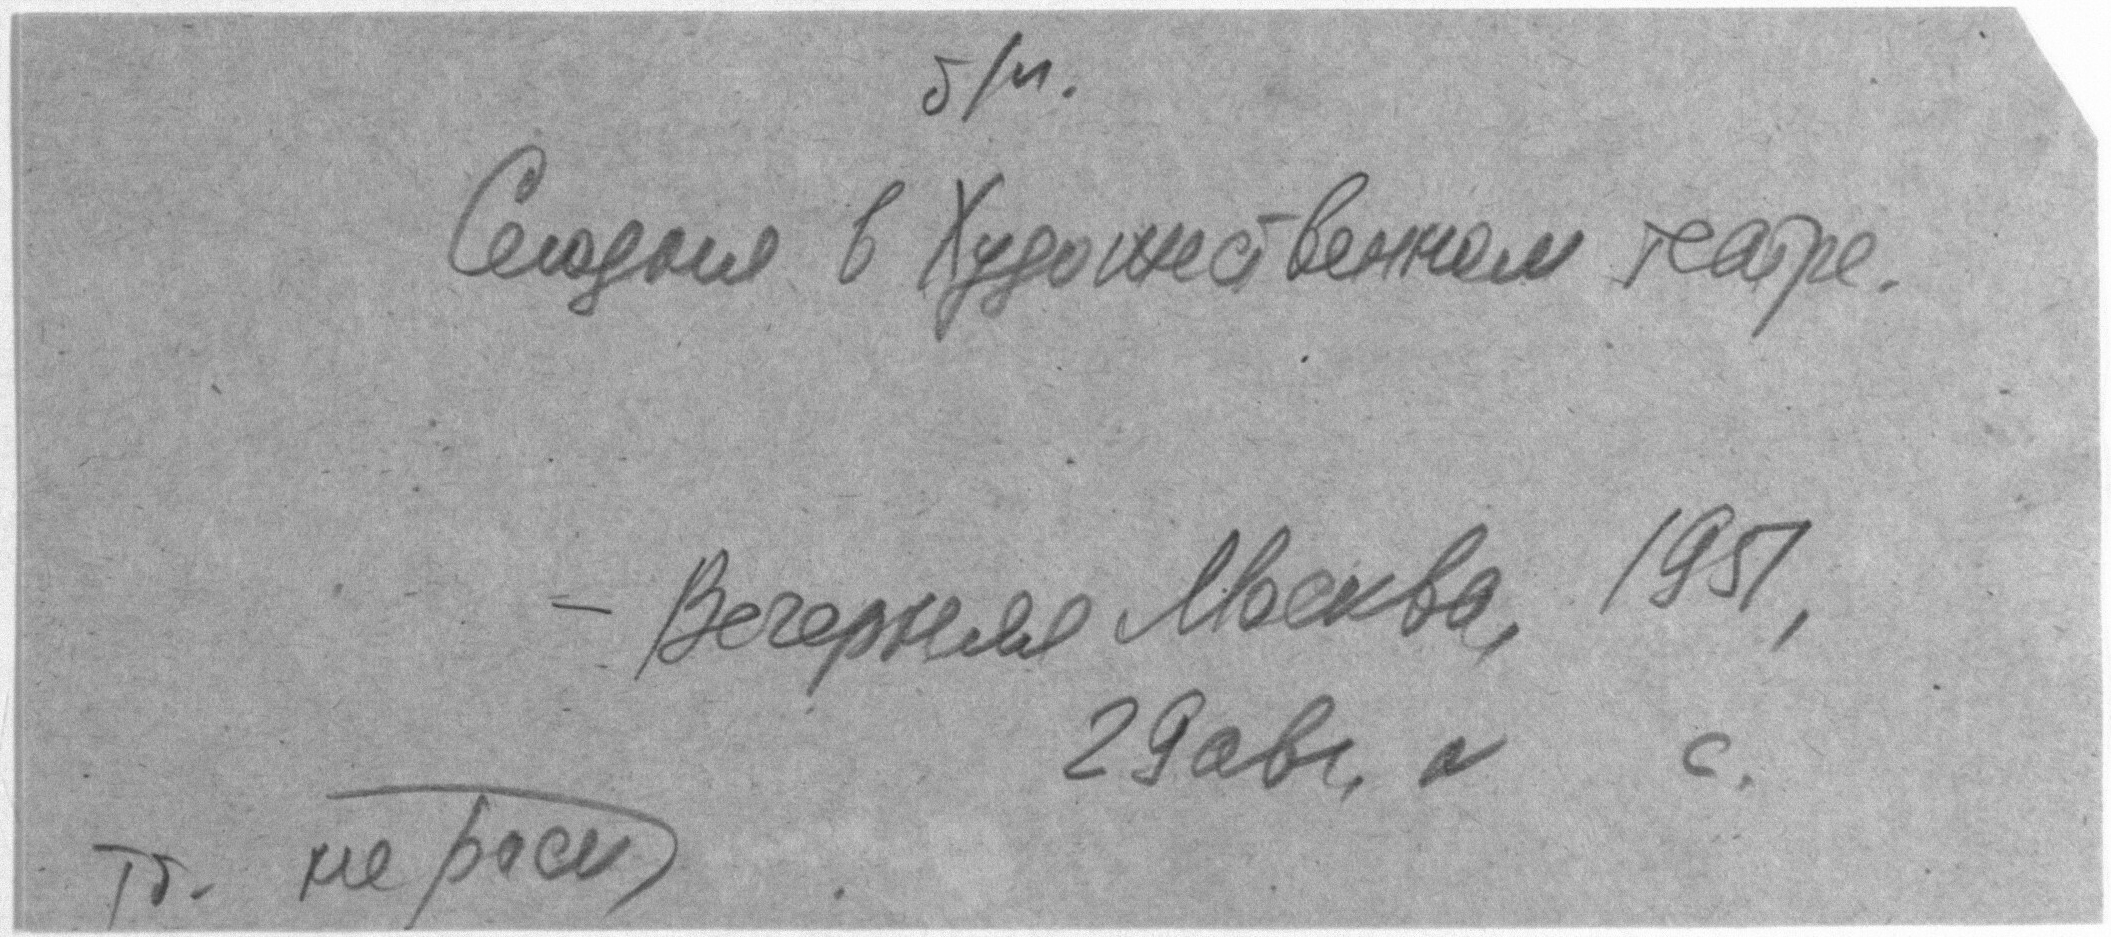 б/п.
Сегодня в Художественном театре.
– Вечерняя Москва, 1951,
29 авг. с.
не расп